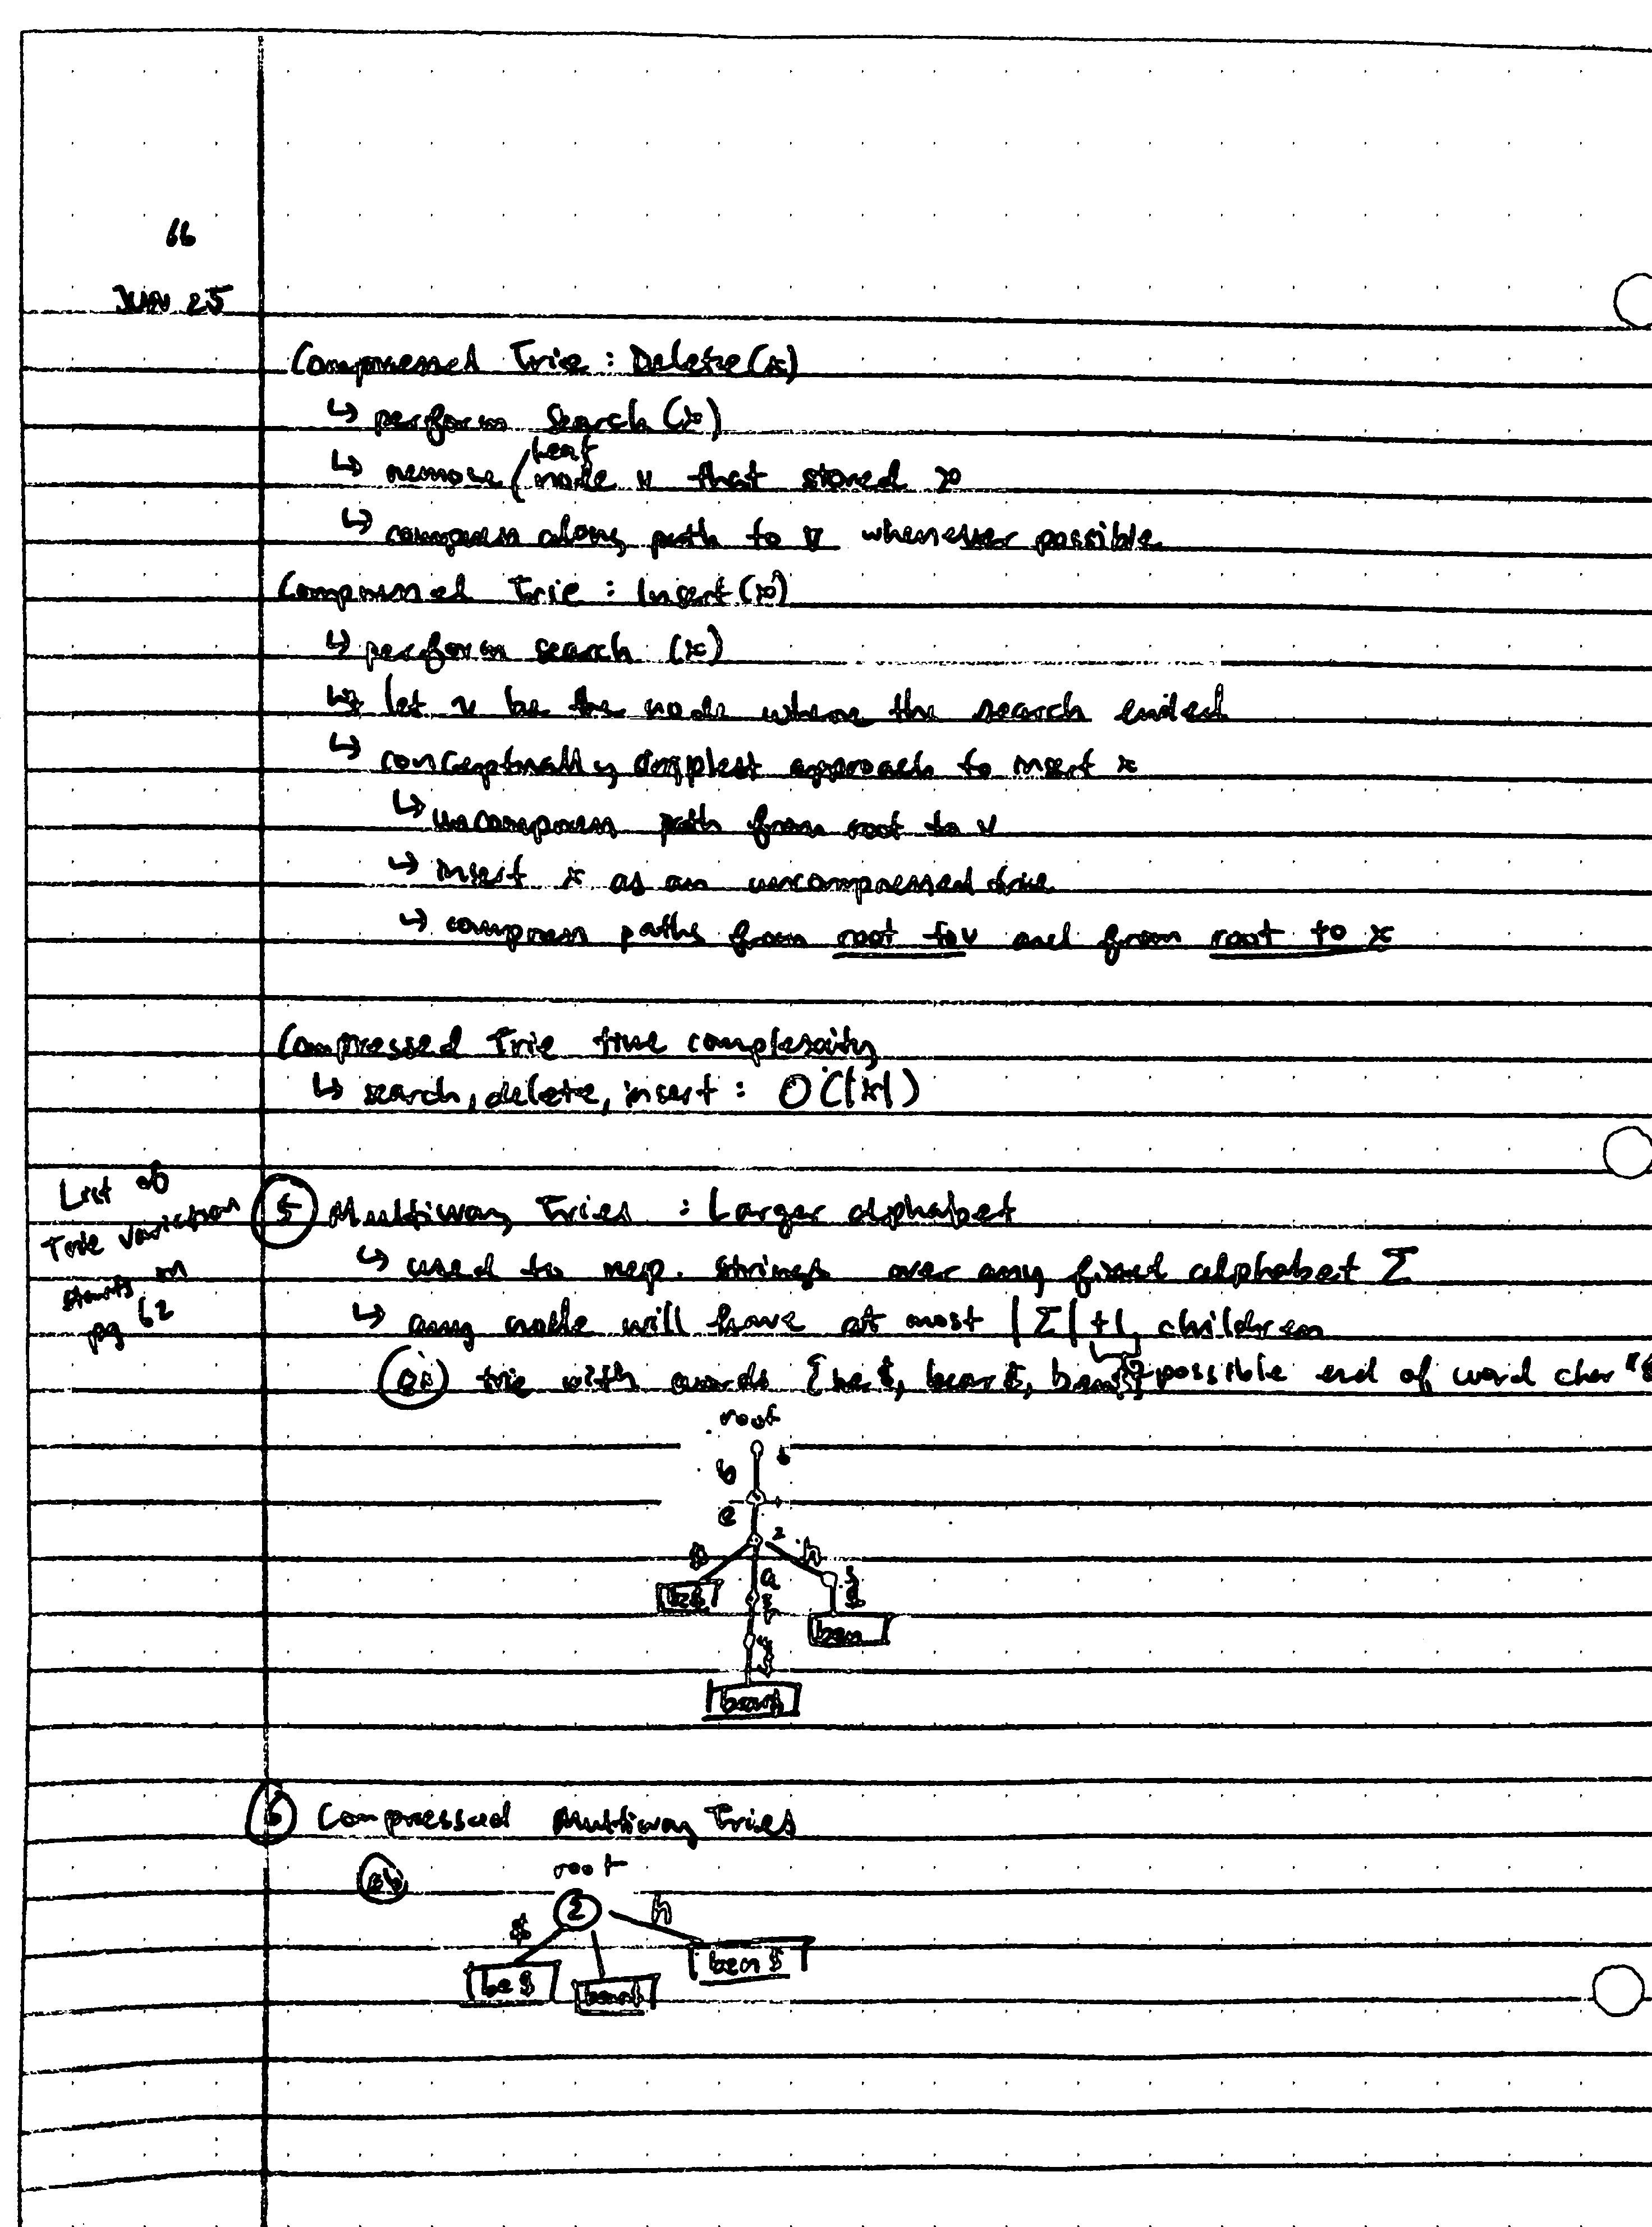 66
JUN 25
Compressed Trie : Delete(x)
↳ perform Search(x)
leaf
↳ remove node v that stored x
↳ compress along path to v whenever possible
Compressed Trie : Insert(x)
↳ perform search (x)
↳ let v be the node where the search ended
↳ conceptually simplest approach to insert x
↳ uncompress path from root to v
↳ insert x as an uncompressed trie
↳ compress paths from root to v and from root to x
Compressed Trie time complexity
↳ search, delete, insert : O(|x|)
List of
Trie variation
starts on
pg 62
5 Multiway Tries : Larger alphabet
↳ used to rep. strings over any fixed alphabet Σ
↳ any node will have at most |Σ|+1 children
possible end of word char "$
ex trie with words {be$, bear$, ben$}
root
b
e
2
$ a n
be$
r
$
ben
bear$
6 Compressed Multiway Tries
ex
root
2
$ n
be$ bear$ ben$